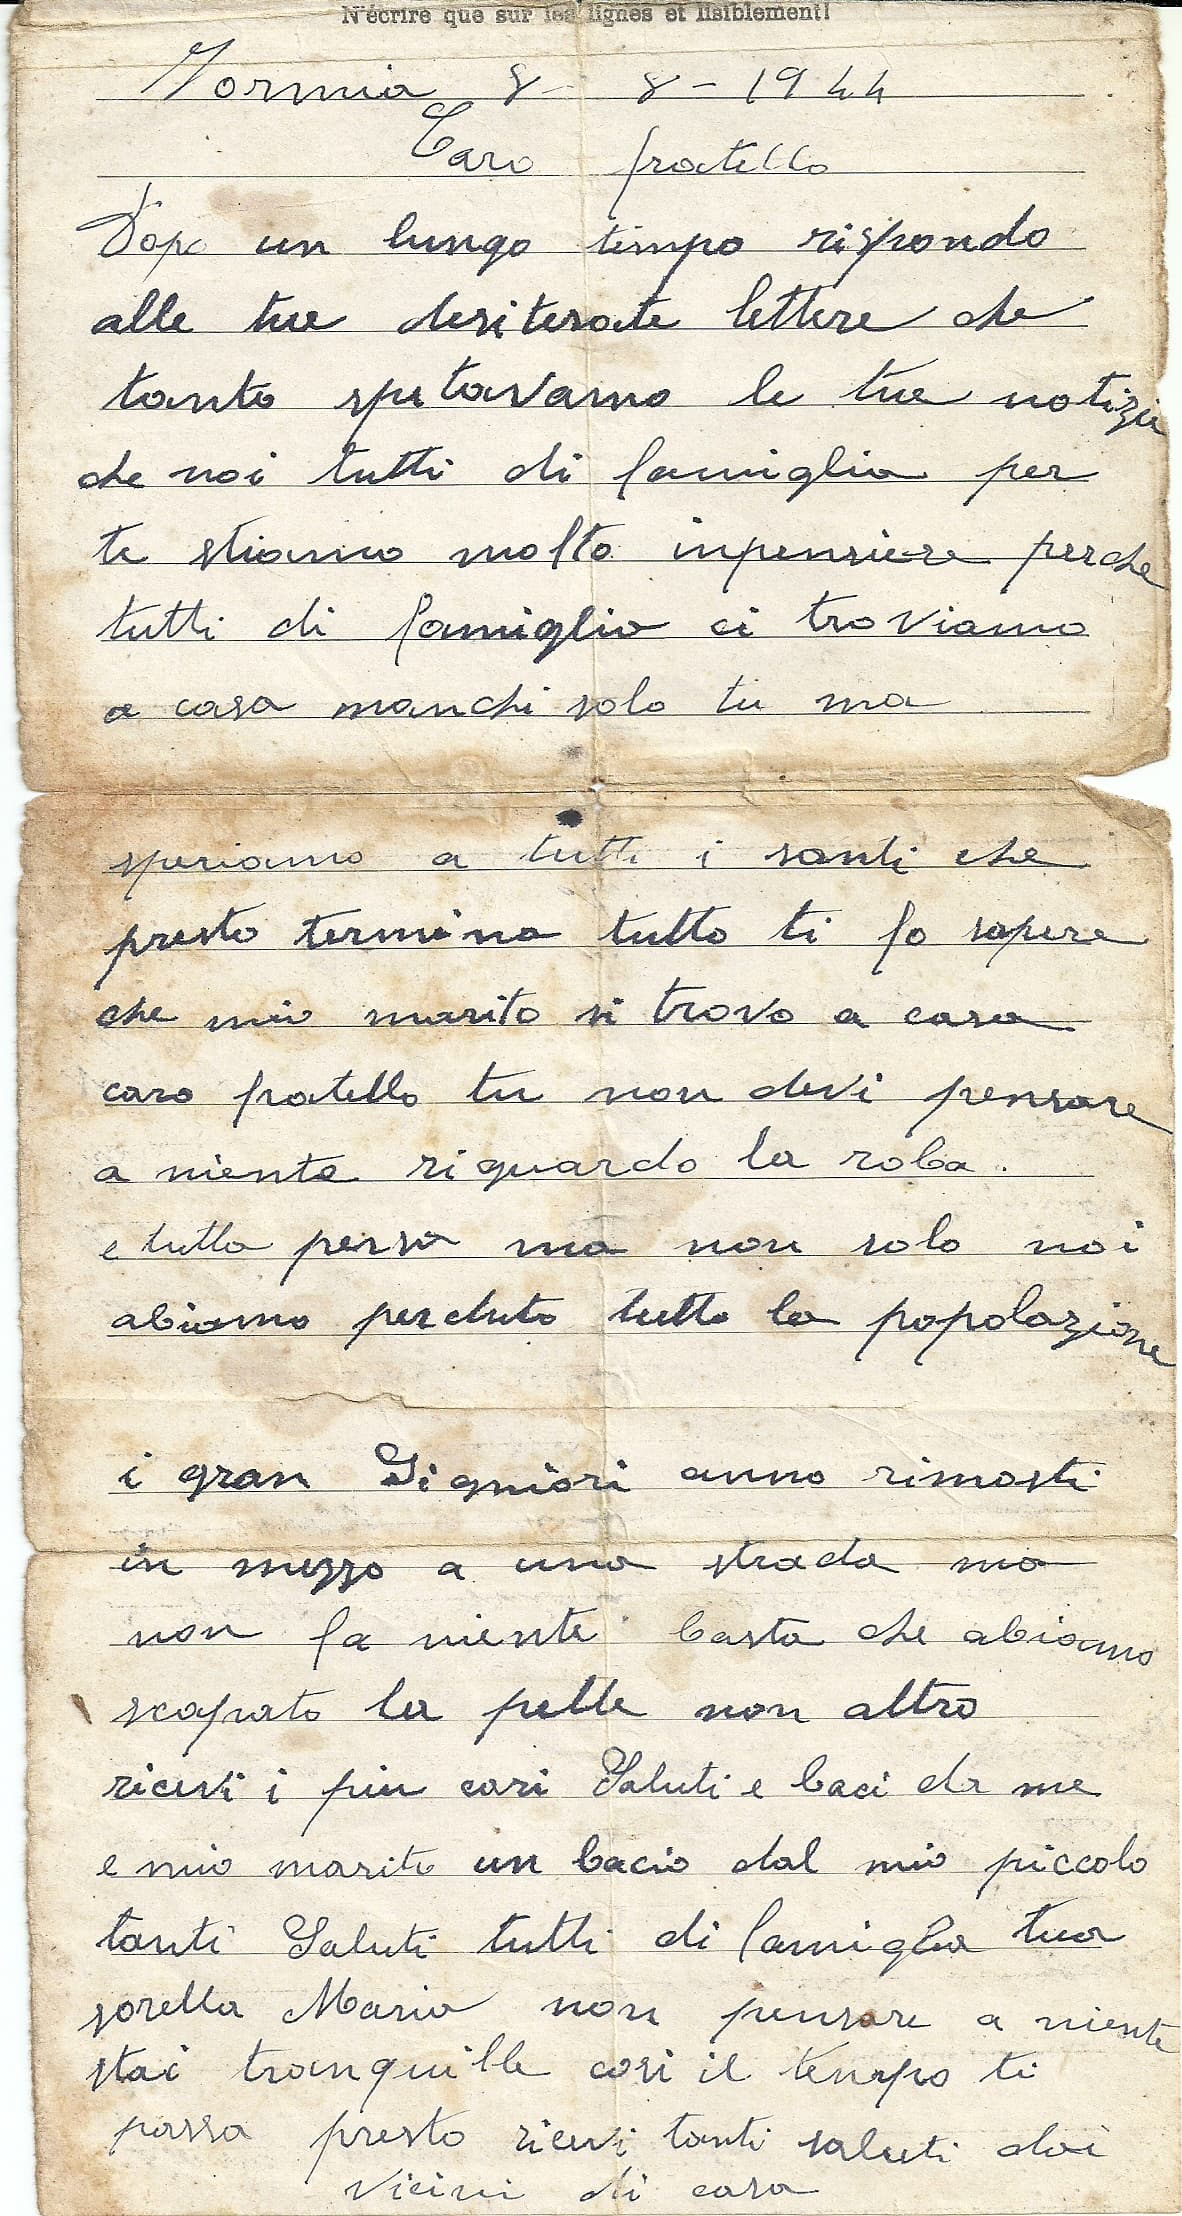 N'écrire que sur les lignes et lisiblement!
Formia 8 - 8 - 1944
Caro fratello
Dopo un lungo tempo rispondo
alle tue desiterate lettere che
tanto spetavamo le tue notizie
che noi tutti di famiglia per
te stiamo molto inpensiere perche
tutti di famiglia ci troviamo
a casa manchi solo tu ma
speriamo a tutti i santi che
presto termina tutto ti fo sapere
che mio marito si trova a casa
caro fratello tu non devi pensare
a niente riguardo la roba.
e tutta persa ma non solo noi
abiamo perduto tutta la popolazione
i gran Signiori anno rimasti
in mezzo a una strada ma
non fa niente basta che abiamo
scapato la pelle non altro
ricevi i piu cari Saluti e baci da me
e mio marito un bacio dal mio piccolo
tanti Saluti tutti di famiglia tua
sorella Maria non pensare a niente
stai tranquille cosi il tempo ti
passa presto ricevi tanti saluti dai
vicini di casa